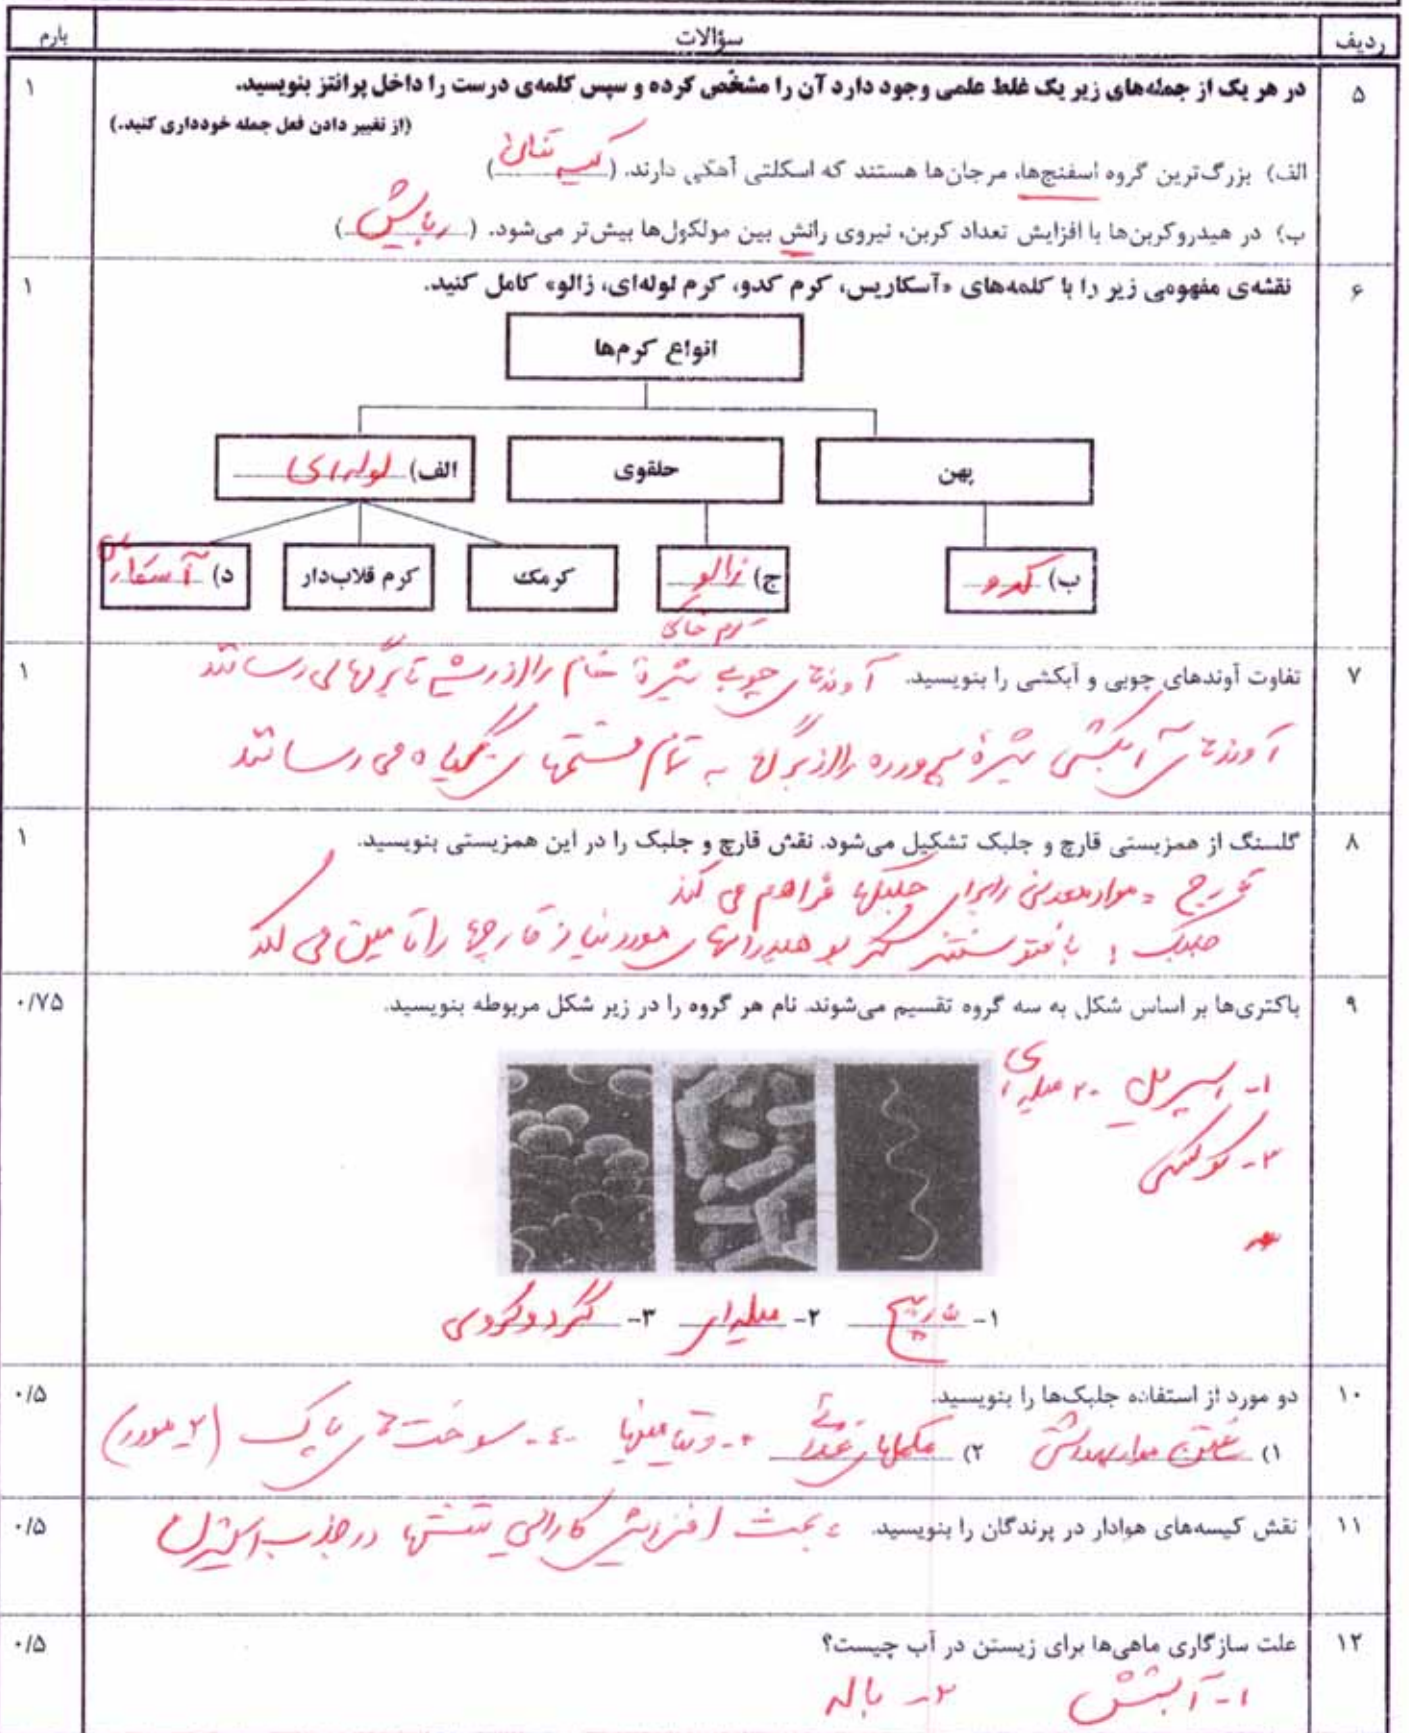 ردیف سؤالات بارم
۵ در هر یک از جمله‌های زیر یک غلط علمی وجود دارد آن را مشخّص کرده و سپس کلمه‌ی درست را داخل پرانتز بنویسید. ۱
(از تغییر دادن فعل جمله خودداری کنید.)
الف) بزرگ‌ترین گروه اسفنج‌ها، مرجان‌ها هستند که اسکلتی آهکی دارند. (کیسه تنان)
ب) در هیدروکربن‌ها با افزایش تعداد کربن، نیروی رانش بین مولکول‌ها بیش‌تر می‌شود. (ربایش)
۶ نقشه‌ی مفهومی زیر را با کلمه‌های «آسکاریس، کرم کدو، کرم لوله‌ای، زالو» کامل کنید. ۱
انواع کرم‌ها
پهن حلقوی الف) لوله‌ای
ب) کدو ج) زالو کرمک کرم قلاب‌دار د) آسکاریس
کرم خاکی
۷ تفاوت آوندهای چوبی و آبکشی را بنویسید. آوندهای چوبی شیرهٔ خام را از ریشه تا برگها می‌رسانند ۱
آوندهای آبکشی شیرهٔ پرورده را از برگها به تمام قسمتهای گیاه می‌رسانند
۸ گلسنگ از همزیستی قارچ و جلبک تشکیل می‌شود. نقش قارچ و جلبک را در این همزیستی بنویسید. ۱
قارچ = مواد معدنی را برای جلبکها فراهم می کند
جلبک : با فتوسنتز کربوهیدراتهای مورد نیاز قارچها را تامین می کند
۹ باکتری‌ها بر اساس شکل به سه گروه تقسیم می‌شوند. نام هر گروه را در زیر شکل مربوطه بنویسید. ۰/۷۵
۱- اسپریل ۲- میله‌ای
۳- کوکسی
۱- مارپیچ ۲- میله‌ای ۳- گرد و کروی
۱۰ دو مورد از استفاده جلبک‌ها را بنویسید. ۰/۵
۱) ساختن مواد بهداشتی ۲) مکملهای غذایی ۳- ویتامینها ۴- سوخت های پاک (۲ مورد)
۱۱ نقش کیسه‌های هوادار در پرندگان را بنویسید. باعث افزایش کارایی ششها در جذب اکسیژن ۰/۵
۱۲ علت سازگاری ماهی‌ها برای زیستن در آب چیست؟ ۰/۵
۱- آبشش ۲- باله